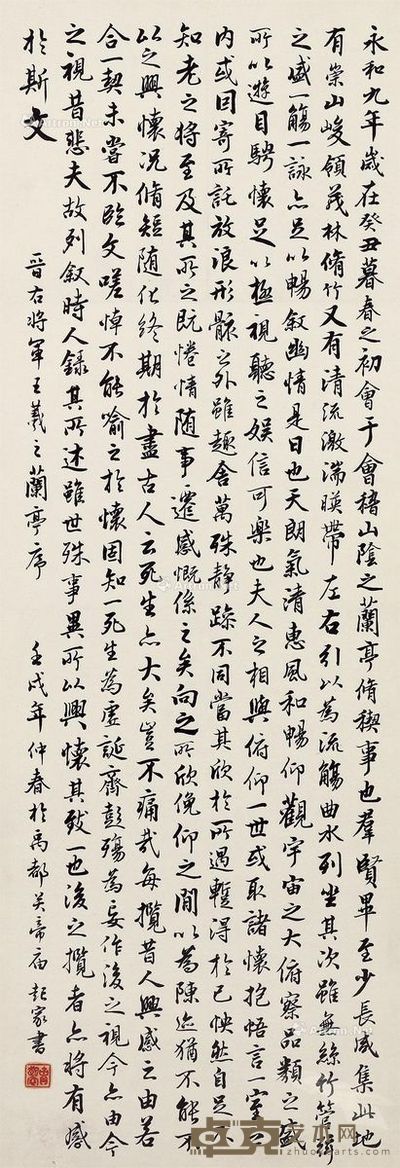 永和九年歲在癸丑暮春之初會于會稽山陰之蘭亭脩稧事也羣賢畢至少長咸集此地
有崇山峻領茂林脩竹又有清流激湍暎帶左右引以為流觴曲水列坐其次雖無絲竹管絃
之盛一觴一詠亦足以暢敘幽情是日也天朗氣清惠風和暢仰觀宇宙之大俯察品類之盛
所以遊目騁懷足以極視聽之娛信可樂也夫人之相與俯仰一世或取諸懷抱悟言一室之
內或因寄所託放浪形骸之外雖趣舍萬殊靜躁不同當其欣於所遇蹔得於己怏然自足不
知老之將至及其所之既惓情隨事遷感慨係之矣向之所欣俛仰之間以為陳迹猶不能不
以之興懷況脩短隨化終期於盡古人云死生亦大矣豈不痛哉每攬昔人興感之由若
合一契未嘗不臨文嗟悼不能喻之於懷固知一死生為虛誕齊彭殤為妄作後之視今亦由今
之視昔悲夫故列敘時人錄其所述雖世殊事異所以興懷其致一也後之攬者亦將有感
於斯文
晉右將軍王羲之蘭亭序 壬戌年仲春於禹都关帝庙 起家書
艺术网